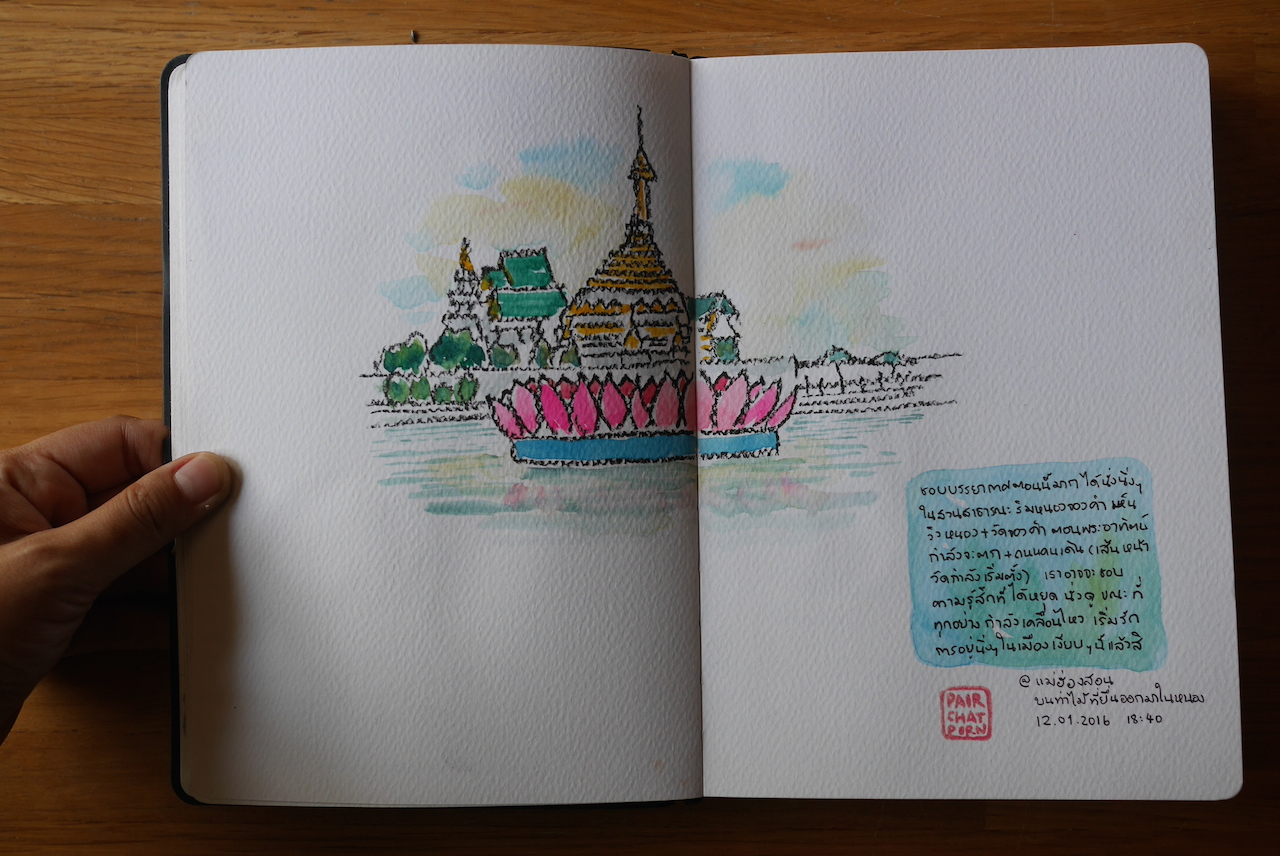 ชอบบรรยากาศตอนนี้มาก ได้นั่งนิ่งๆ
ในสวนสาธารณะ ริมหนองจองคำ เห็น
วิวหนอง + วัดจองคำ ตอนพระอาทิตย์
กำลังจะตก + ถนนคนเดิน (เส้นหน้า
วัดกำลังเริ่มตั้ง) เราอาจจะชอบ
ความรู้สึกที่ได้หยุด นั่งดู ขณะที่
ทุกอย่างกำลังเคลื่อนไหว เริ่มรัก
การอยู่นิ่งๆ ในเมืองเงียบๆ นี้แล้วสิ
@ แม่ฮ่องสอน
บนท่าไม้ที่ยื่นออกมาในหนอง
12.01.2016 18:40
PAIR
CHAT
PORN